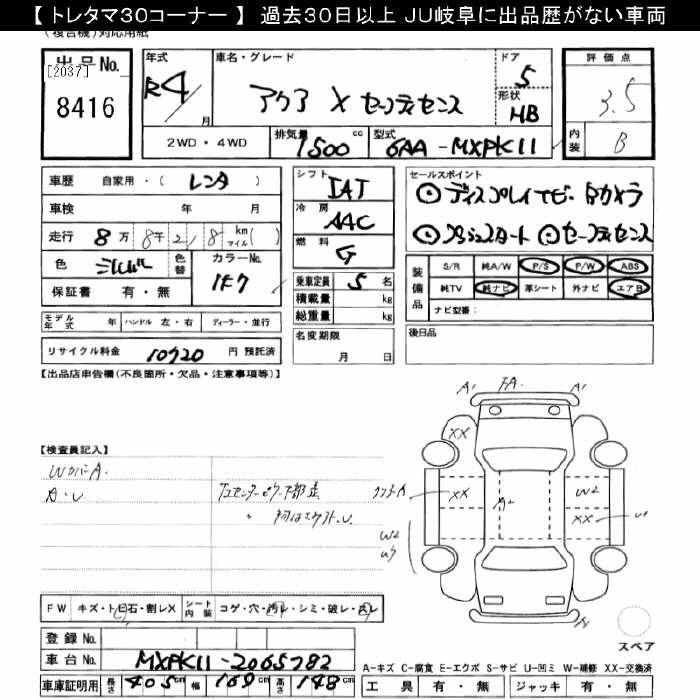 【トレタマ30コーナー】 過去30日以上 JU岐阜に出品歴がない車両
(複合機)対応用紙
出品No.
[2037]
8416
年式
R4
月
車名・グレード
アクア X セーフティセンス
ドア
5
形状
HB
評価点
3.5
内装
B
2WD・4WD
排気量
1500 cc
型式
6AA-MXPK11
車歴 自家用・( レンタ )
車検 年 月
走行 8万8千218 km マイル( )
色 シルバー
色替
カラーNo.
1F7
保証書 有・無
シフト
IAT
冷房
AAC
燃料
G
乗車定員 5 名
積載量 kg
総重量 kg
名変期限
月 日
セールスポイント
◎ディスプレイナビ・Bカメラ
◎プッシュスタート ◎セーフティセンス
装備品
S/R 純A/W P/S P/W ABS
純TV 純ナビ 革シート 外ナビ エアB
ナビ型番:
後日品
モデル年式 年 ハンドル 左・右 ディーラー・並行
リサイクル料金 10720 円 預託済
【出品店申告欄(不良箇所・欠品・注意事項等)】
【検査員記入】
WカバーA.
A・U
A1 FA. A1
XX
XX
A2
W2
XX
U1
W2
U3
A
FW キズ・トビ石・割レX シート内装 コゲ・穴・汚レ・シミ・破レ・スレ
登録No.
車台No. MXPK11-2065782
車庫証明用 長さ 405 cm 幅 169 cm 高さ 148 cm
スペア
A-キズ C-腐食 E-エクボ S-サビ U-凹ミ W-補修 XX-交換済
工具 有・無 ジャッキ 有・無